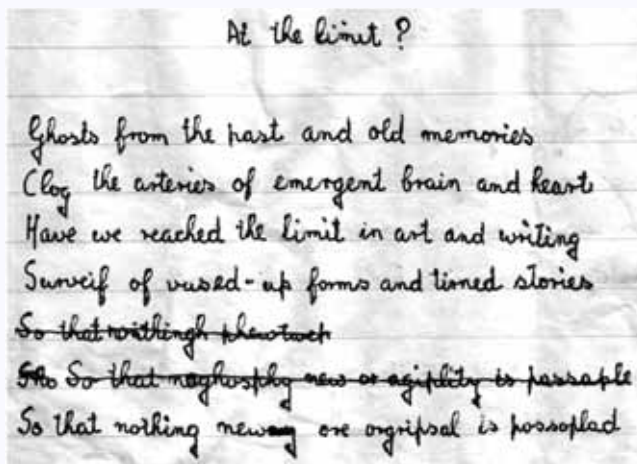 At the limit ?
Ghosts from the past and old memories
Clog the arteries of emergent brain and heart
Have we reached the limit in art and writing
Surveif of vused-up forms and timed stories
So that
So that new or is passaple
So that nothing new ore orgripsal is possoplad